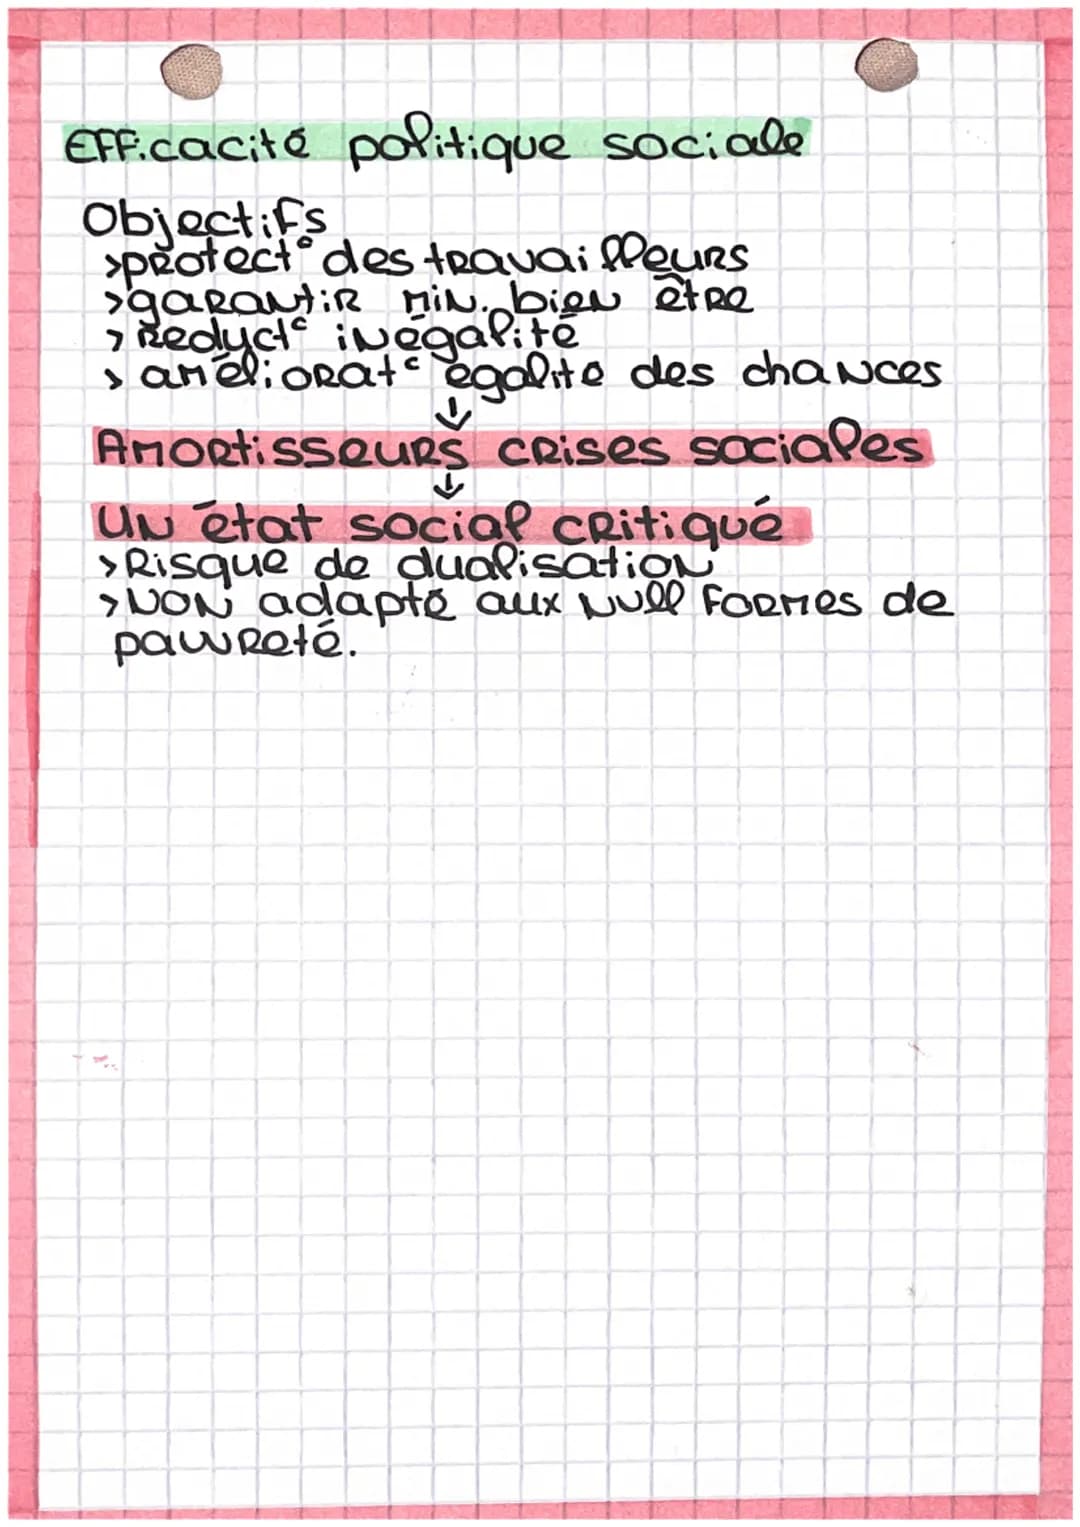 Efficacité politique sociale
Objectifs
>protect° des travailleurs
>garantir min. bien être
>Reduct° inégalité
> améliorat° égalité des chances
↓
Amortisseurs crises sociales
↓
Un état social critiqué
>Risque de dualisation
>Non adapté aux Nvll formes de
pauvreté.